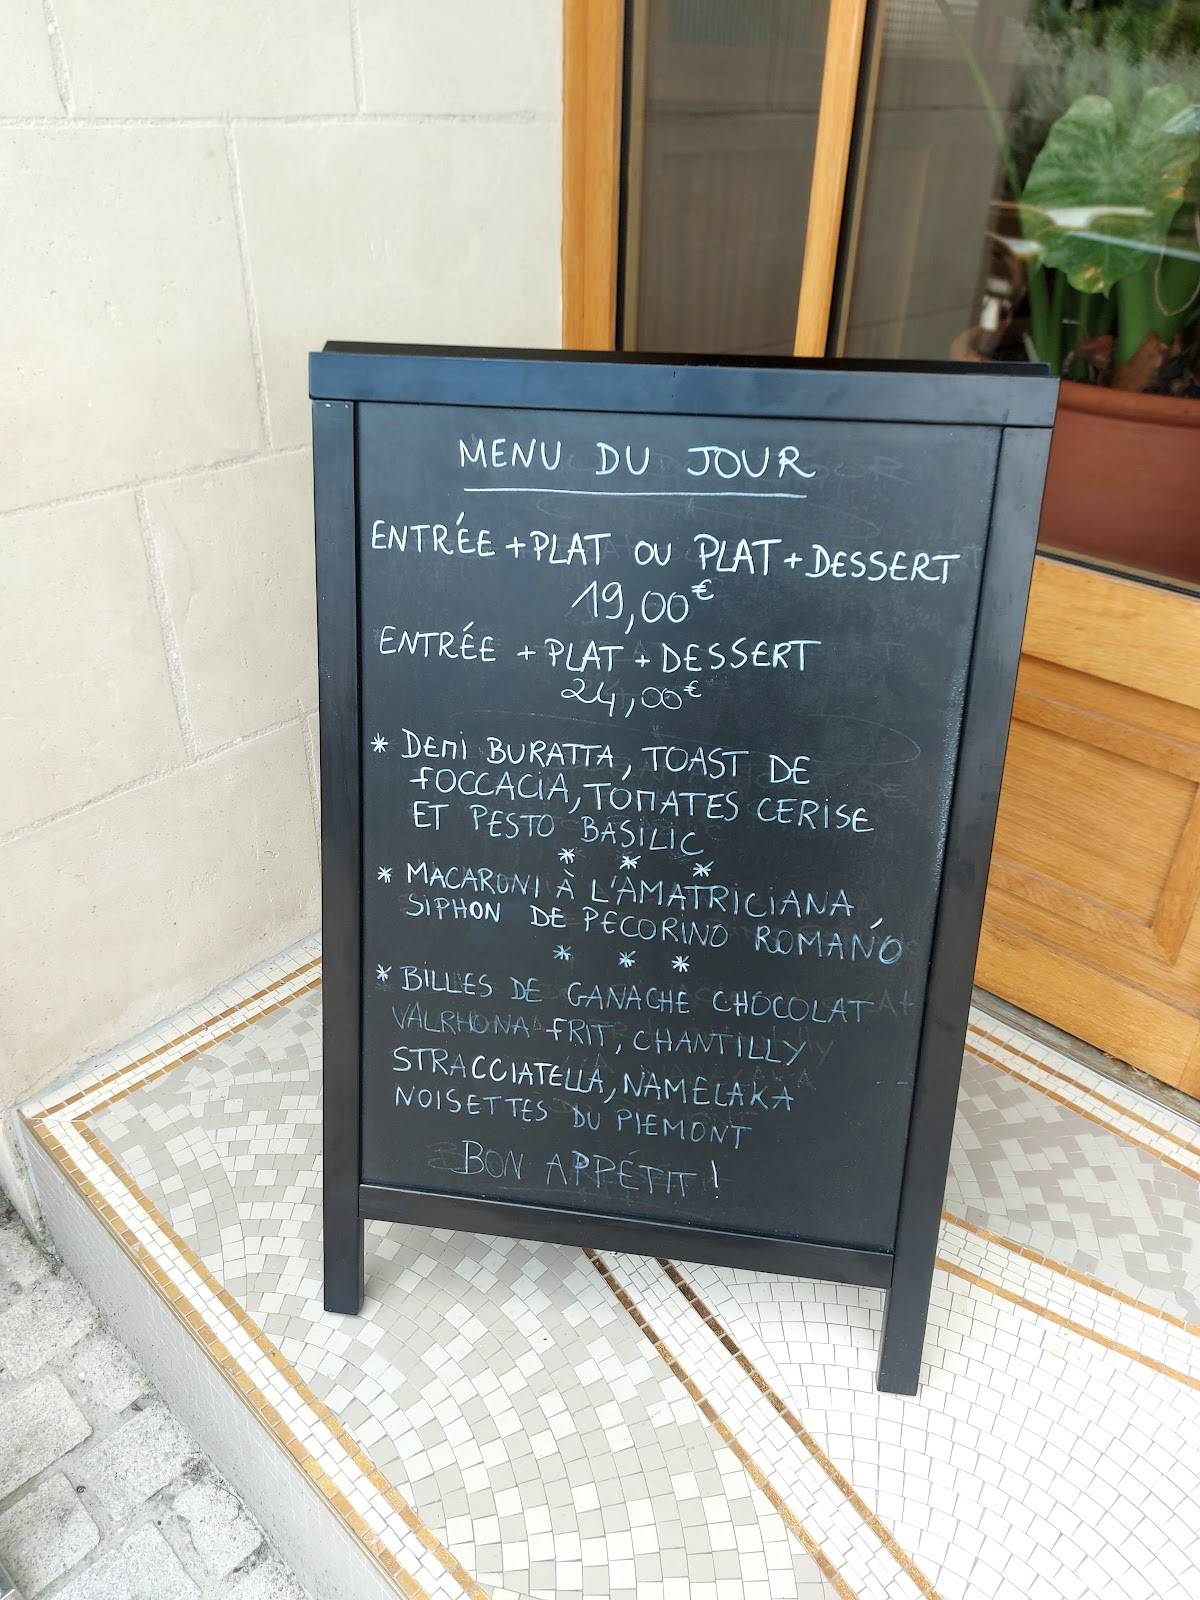 MENU DU JOUR
ENTRÉE + PLAT OU PLAT + DESSERT
19,00€
ENTRÉE + PLAT + DESSERT
24,00€
* DEMI BURATTA, TOAST DE
FOCCACIA, TOMATES CERISE
ET PESTO BASILIC
* * *
* MACARONI À L'AMATRICIANA,
SIPHON DE PECORINO ROMANO
* * *
* BILLES DE GANACHE CHOCOLAT
VALRHONA FRIT, CHANTILLY
STRACCIATELLA, NAMELAKA
NOISETTES DU PIEMONT
BON APPÉTIT !